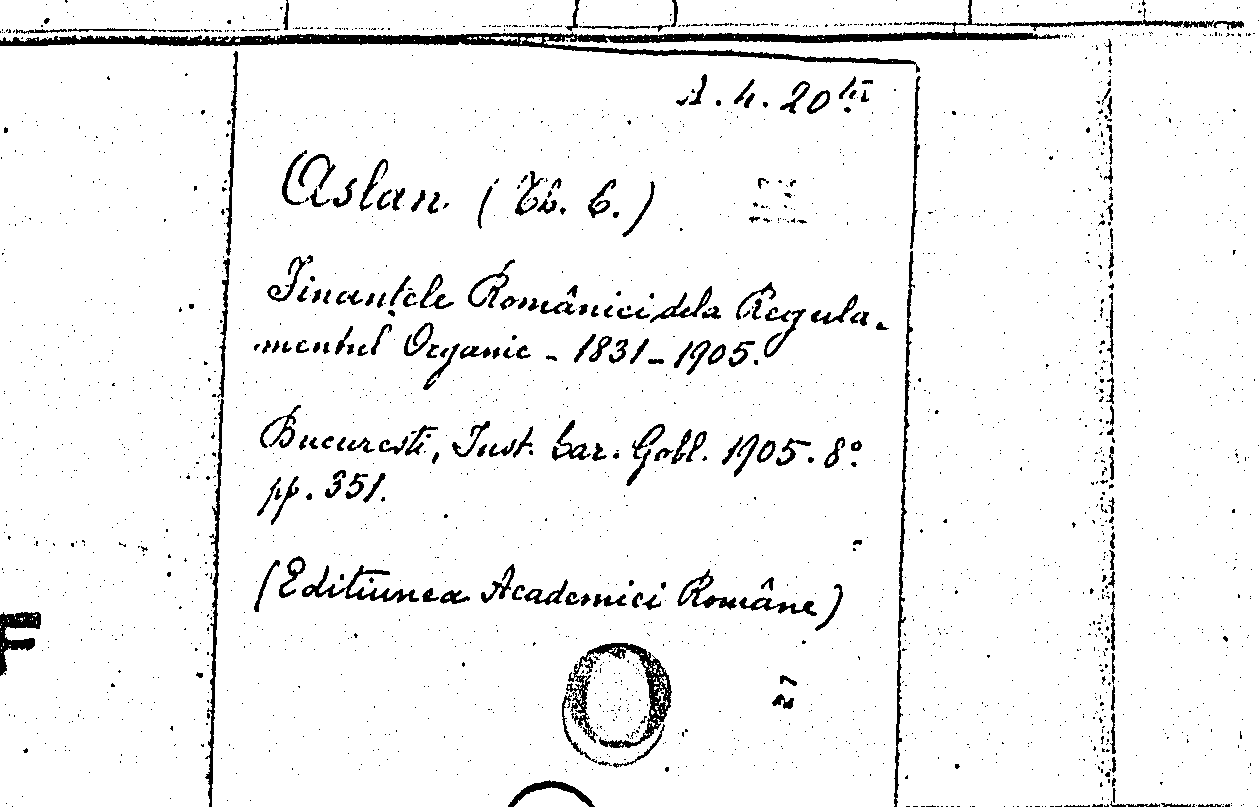 A. 4. 20
Aslan (Th. C.)
Finanțele României dela Regula-
mentul Organic - 1831 - 1905.
Bucuresti, Inst. Car. Gobl. 1905. 8°.
pp. 351.
(Editiunea Academiei Române)
27
F